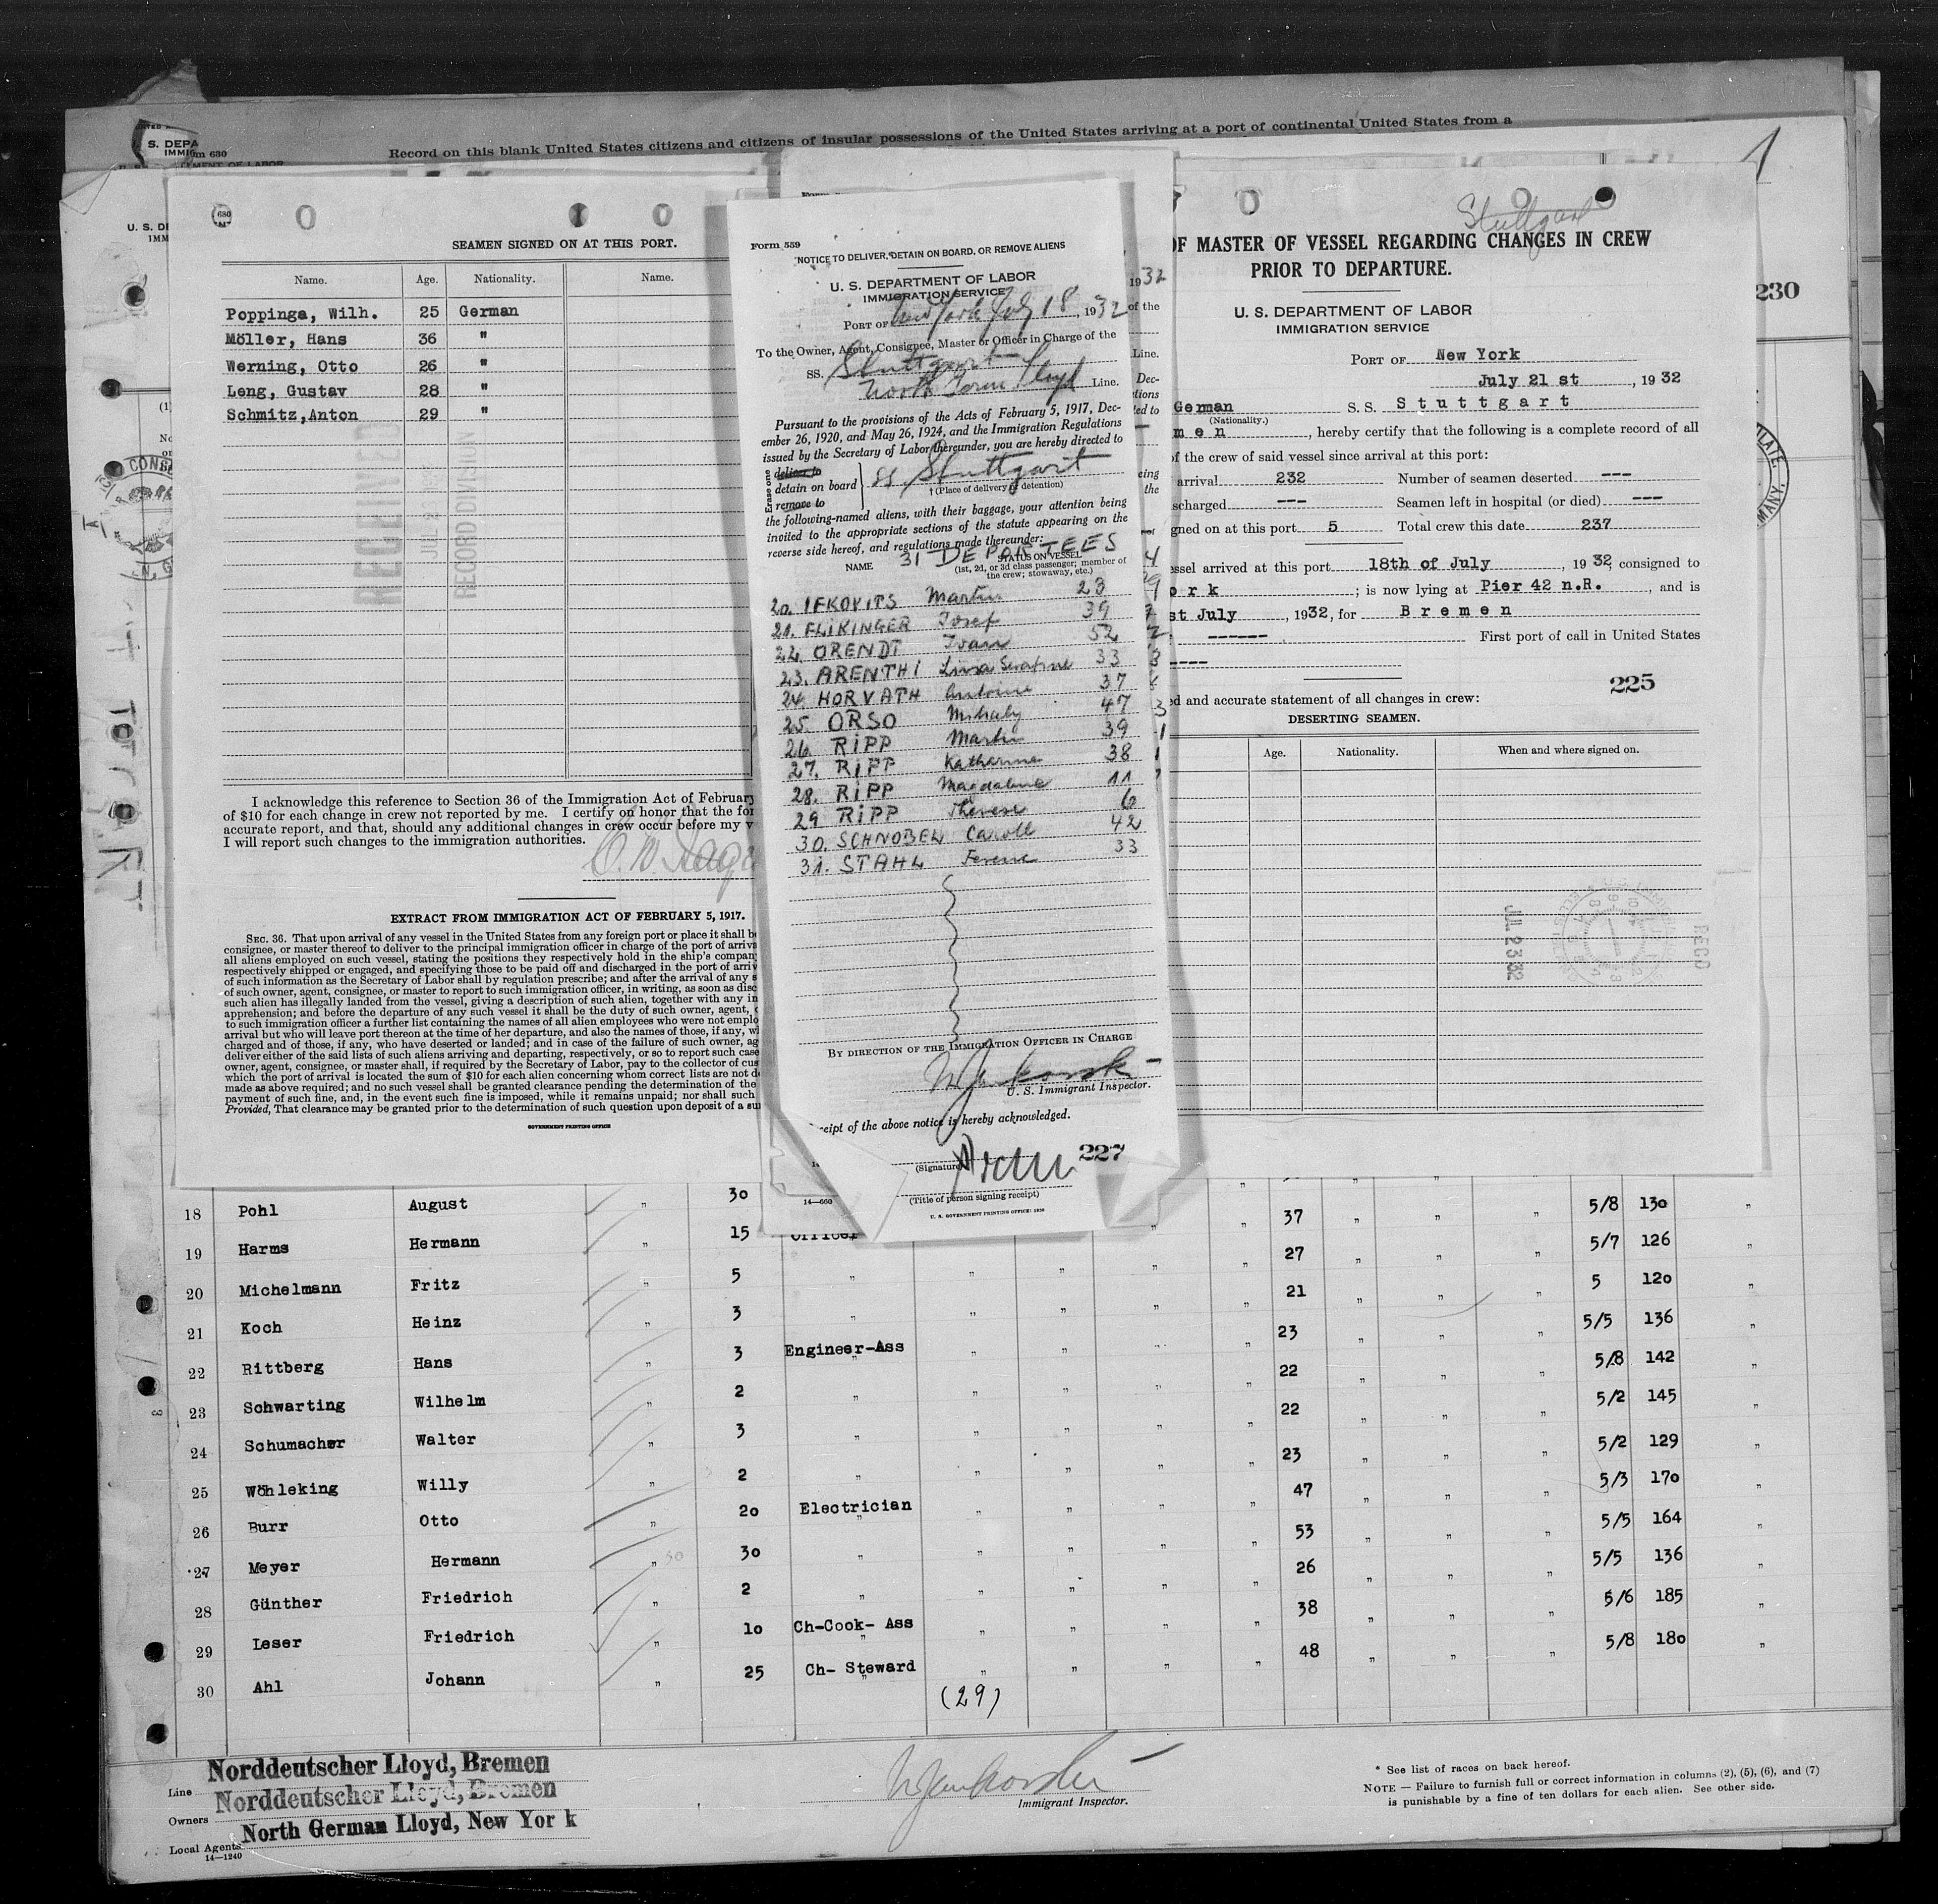 S. DEPA
IMMIG
m 630
MENT OF LABOR
Record on this blank United States citizens and citizens of insular possessions of the United States arriving at a port of continental United States from a
1
U. S. DE
IMM
(1)
230
SEAMEN SIGNED ON AT THIS PORT.
Name. Age. Nationality. Name.
Poppinga, Wilh. 25 German
Möller, Hans 36 "
Werning, Otto 26 "
Leng, Gustav 28 "
Schmitz,Anton 29 "
RECEIVED
RECORD DIVISION
I acknowledge this reference to Section 36 of the Immigration Act of February
of $10 for each change in crew not reported by me. I certify on honor that the for
accurate report, and that, should any additional changes in crew occur before my v
I will report such changes to the immigration authorities.
EXTRACT FROM IMMIGRATION ACT OF FEBRUARY 5, 1917.
SEC. 36. That upon arrival of any vessel in the United States from any foreign port or place it shall b
consignee, or master thereof to deliver to the principal immigration officer in charge of the port of arriva
all aliens employed on such vessel, stating the positions they respectively hold in the ship's compan
respectively shipped or engaged, and specifying those to be paid off and discharged in the port of arriv
of such information as the Secretary of Labor shall by regulation prescribe; and after the arrival of any s
of such owner, agent, consignee, or master to report to such immigration officer, in writing, as soon as disc
such alien has illegally landed from the vessel, giving a description of such alien, together with any in
apprehension; and before the departure of any such vessel it shall be the duty of such owner, agent,
to such immigration officer a further list containing the names of all alien employees who were not emplo
arrival but who will leave port thereon at the time of her departure, and also the names of those, if any, w
charged and of those, if any, who have deserted or landed; and in case of the failure of such owner, ag
deliver either of the said lists of such aliens arriving and departing, respectively, or so to report such case
owner, agent, consignee, or master shall, if required by the Secretary of Labor, pay to the collector of cus
which the port of arrival is located the sum of $10 for each alien concerning whom correct lists are not d
made as above required; and no such vessel shall be granted clearance pending the determination of the
payment of such fine, and, in the event such fine is imposed, while it remains unpaid; nor shall such
Provided, That clearance may be granted prior to the determination of such question upon deposit of a su
GOVERNMENT PRINTING OFFICE
Form 559
NOTICE TO DELIVER, DETAIN ON BOARD, OR REMOVE ALIENS
U. S. DEPARTMENT OF LABOR
IMMIGRATION SERVICE
PORT OF New York July 18, 1932
To the Owner, Agent, Consignee, Master or Officer in Charge of the
SS. Stuttgart
North Germ Lloyd Line.
Pursuant to the provisions of the Acts of February 5, 1917, Dec-
ember 26, 1920, and May 26, 1924, and the Immigration Regulations
issued by the Secretary of Labor thereunder, you are hereby directed to
Erase one
deliver to
detain on board
remove to
SS. Stuttgart
† (Place of delivery or detention)
the following-named aliens, with their baggage, your attention being
invited to the appropriate sections of the statute appearing on the
reverse side hereof, and regulations made thereunder:
31 DEPORTEES
NAME STATUS ON VESSEL
(1st, 2d, or 3d class passenger; member of
the crew; stowaway, etc.)
20. IFKOVITS Martin 23
21. FLIKINGER Josef 39
22. ORENDT Ivan 52
23. ARENTHI 33
24. HORVATH Antoine 37
25. ORSO Mihaly 47
26. RIPP Martin 39
27. RIPP Katharina 38
28. RIPP Magdalene 11
29 RIPP Therese 6
30. SCHNOBEL Caroll 42
31. STAHL Ferenc 33
BY DIRECTION OF THE IMMIGRATION OFFICER IN CHARGE
U. S. Immigrant Inspector.
ceipt of the above notice is hereby acknowledged.
227
(Signature)
(Title of person signing receipt)
14—660
U. S. GOVERNMENT PRINTING OFFICE: 1930
1932
of the
Line.
Stuttgart
OF MASTER OF VESSEL REGARDING CHANGES IN CREW
PRIOR TO DEPARTURE.
U. S. DEPARTMENT OF LABOR
IMMIGRATION SERVICE
PORT OF New York
July 21 st, 1932
German S. S. Stuttgart
(Nationality.)
men, hereby certify that the following is a complete record of all
of the crew of said vessel since arrival at this port:
arrival 232 Number of seamen deserted ---
scharged --- Seamen left in hospital (or died) ---
igned on at this port 5 Total crew this date 237
essel arrived at this port 18th of July, 1932, consigned to
ork; is now lying at Pier 42 n.R., and is
st July, 1932, for Bremen
------ First port of call in United States
----
225
ed and accurate statement of all changes in crew:
DESERTING SEAMEN.
Age. Nationality. When and where signed on.
JUL 23 32
RECD
18 Pohl August " 30 " 37 " " " 5/8 130 "
19 Harms Hermann " 15 Officer " 27 " " " 5/7 126 "
20 Michelmann Fritz " 5 " " " " " 21 " " " 5 120 "
21 Koch Heinz " 3 " " " " " 23 " " " 5/5 136 "
22 Rittberg Hans " 3 Engineer-Ass " " " " 22 " " " 5/8 142 "
23 Schwarting Wilhelm " 2 " " " " " 22 " " " 5/2 145 "
24 Schumacher Walter " 3 " " " " " 23 " " " 5/2 129 "
25 Wöhleking Willy " 2 " " " " " 47 " " " 5/3 170 "
26 Burr Otto " 20 Electrician " " " " 53 " " " 5/5 164 "
27 Meyer Hermann " 30 " " " " " 26 " " " 5/5 136 "
28 Günther Friedrich " 2 " " " " " 38 " " " 5/6 185 "
29 Leser Friedrich " 10 Ch-Cook- Ass " " " " 48 " " " 5/8 180 "
30 Ahl Johann " 25 Ch- Steward " " " "
(29)
Line Norddeutscher Lloyd, Bremen
Owners Norddeutscher Lloyd, Bremen
Local Agents North German Lloyd, New York
14—1240
Immigrant Inspector.
* See list of races on back hereof.
NOTE — Failure to furnish full or correct information in columns (2), (5), (6), and (7)
is punishable by a fine of ten dollars for each alien. See other side.